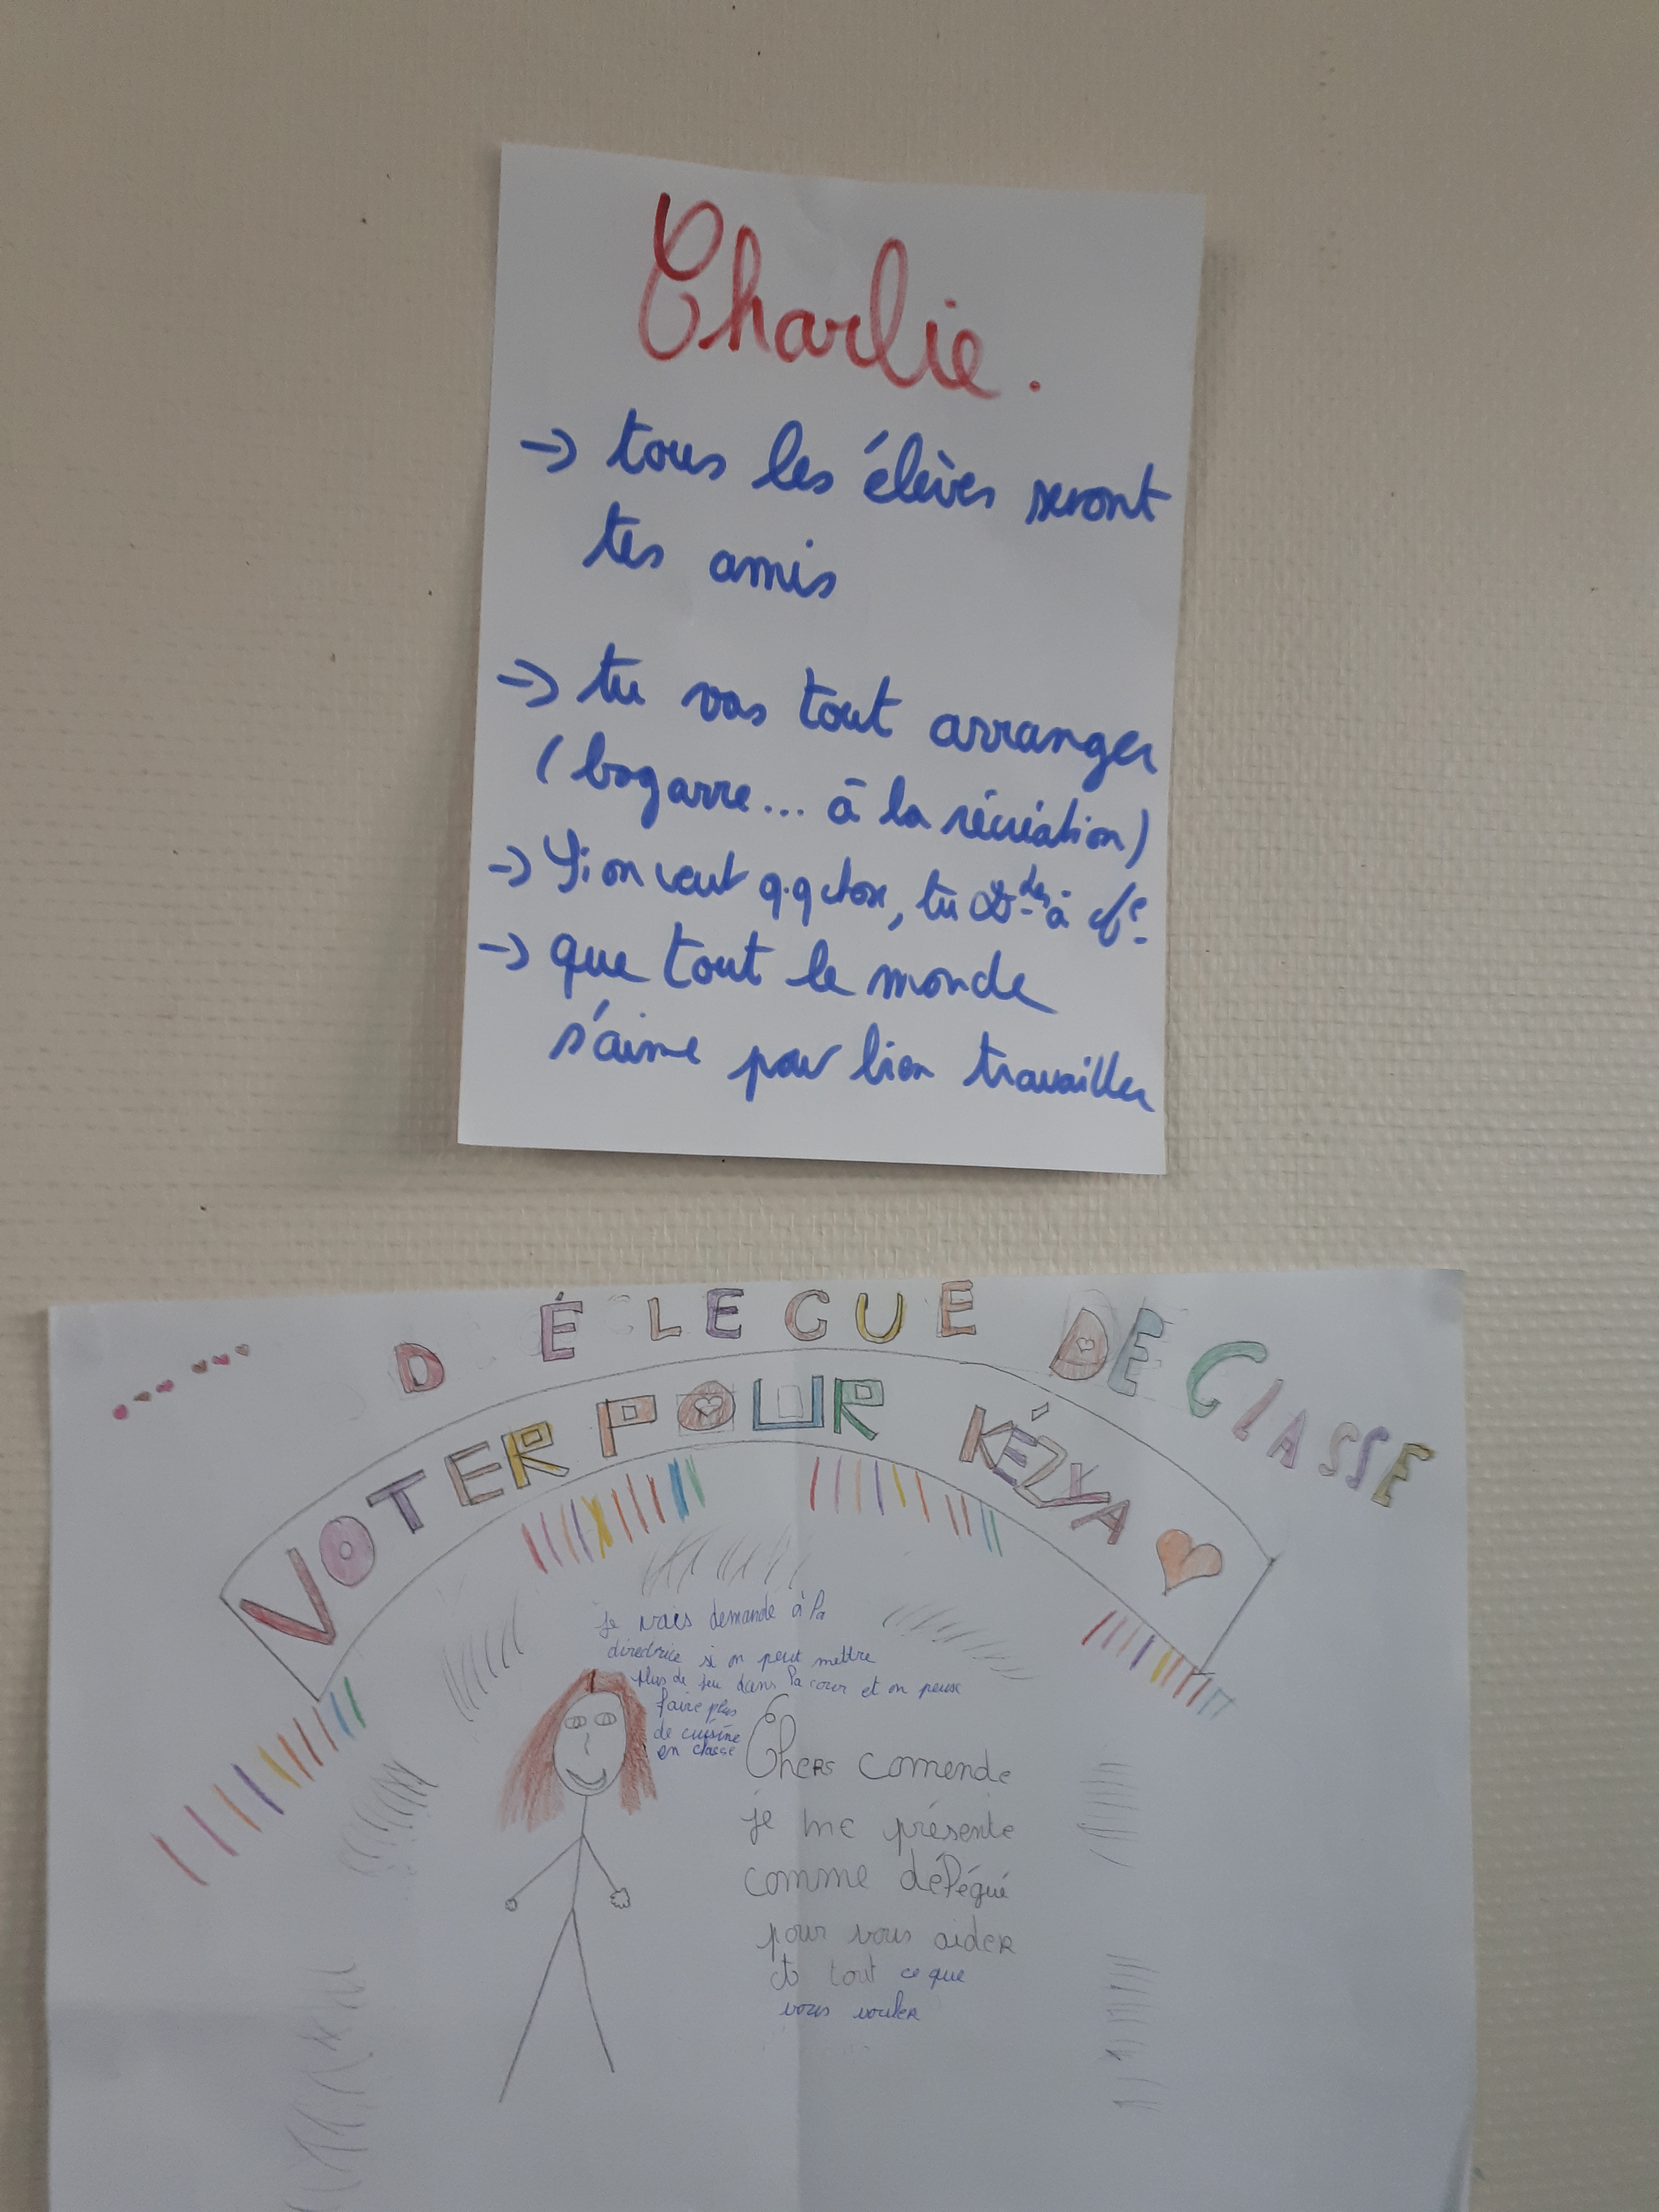 Charlie.
→ tous les élèves seront
tes amis
→ tu vas tout arranger
(bagarre... à la récréation)
→ Si on veut q.q chose, tu à
→ que tout le monde
s'aime pour bien travailler
DÉLEGUE DE CLASSE
VOTER POUR KÉZYA
je vais demande à la
directrice si on peut mettre
plus de jeu dans la cour et on peux
faire plus
de cuisine
en classe
Chers comende
je me présente
comme délégué
pour vous aider
tout ce que
vous vouler